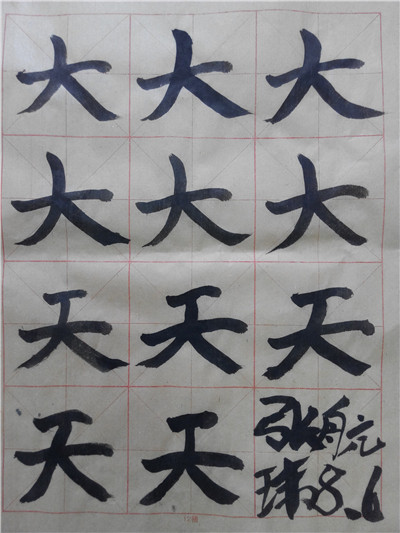 大大大
大大大
天天天
天天张航
玮8.6